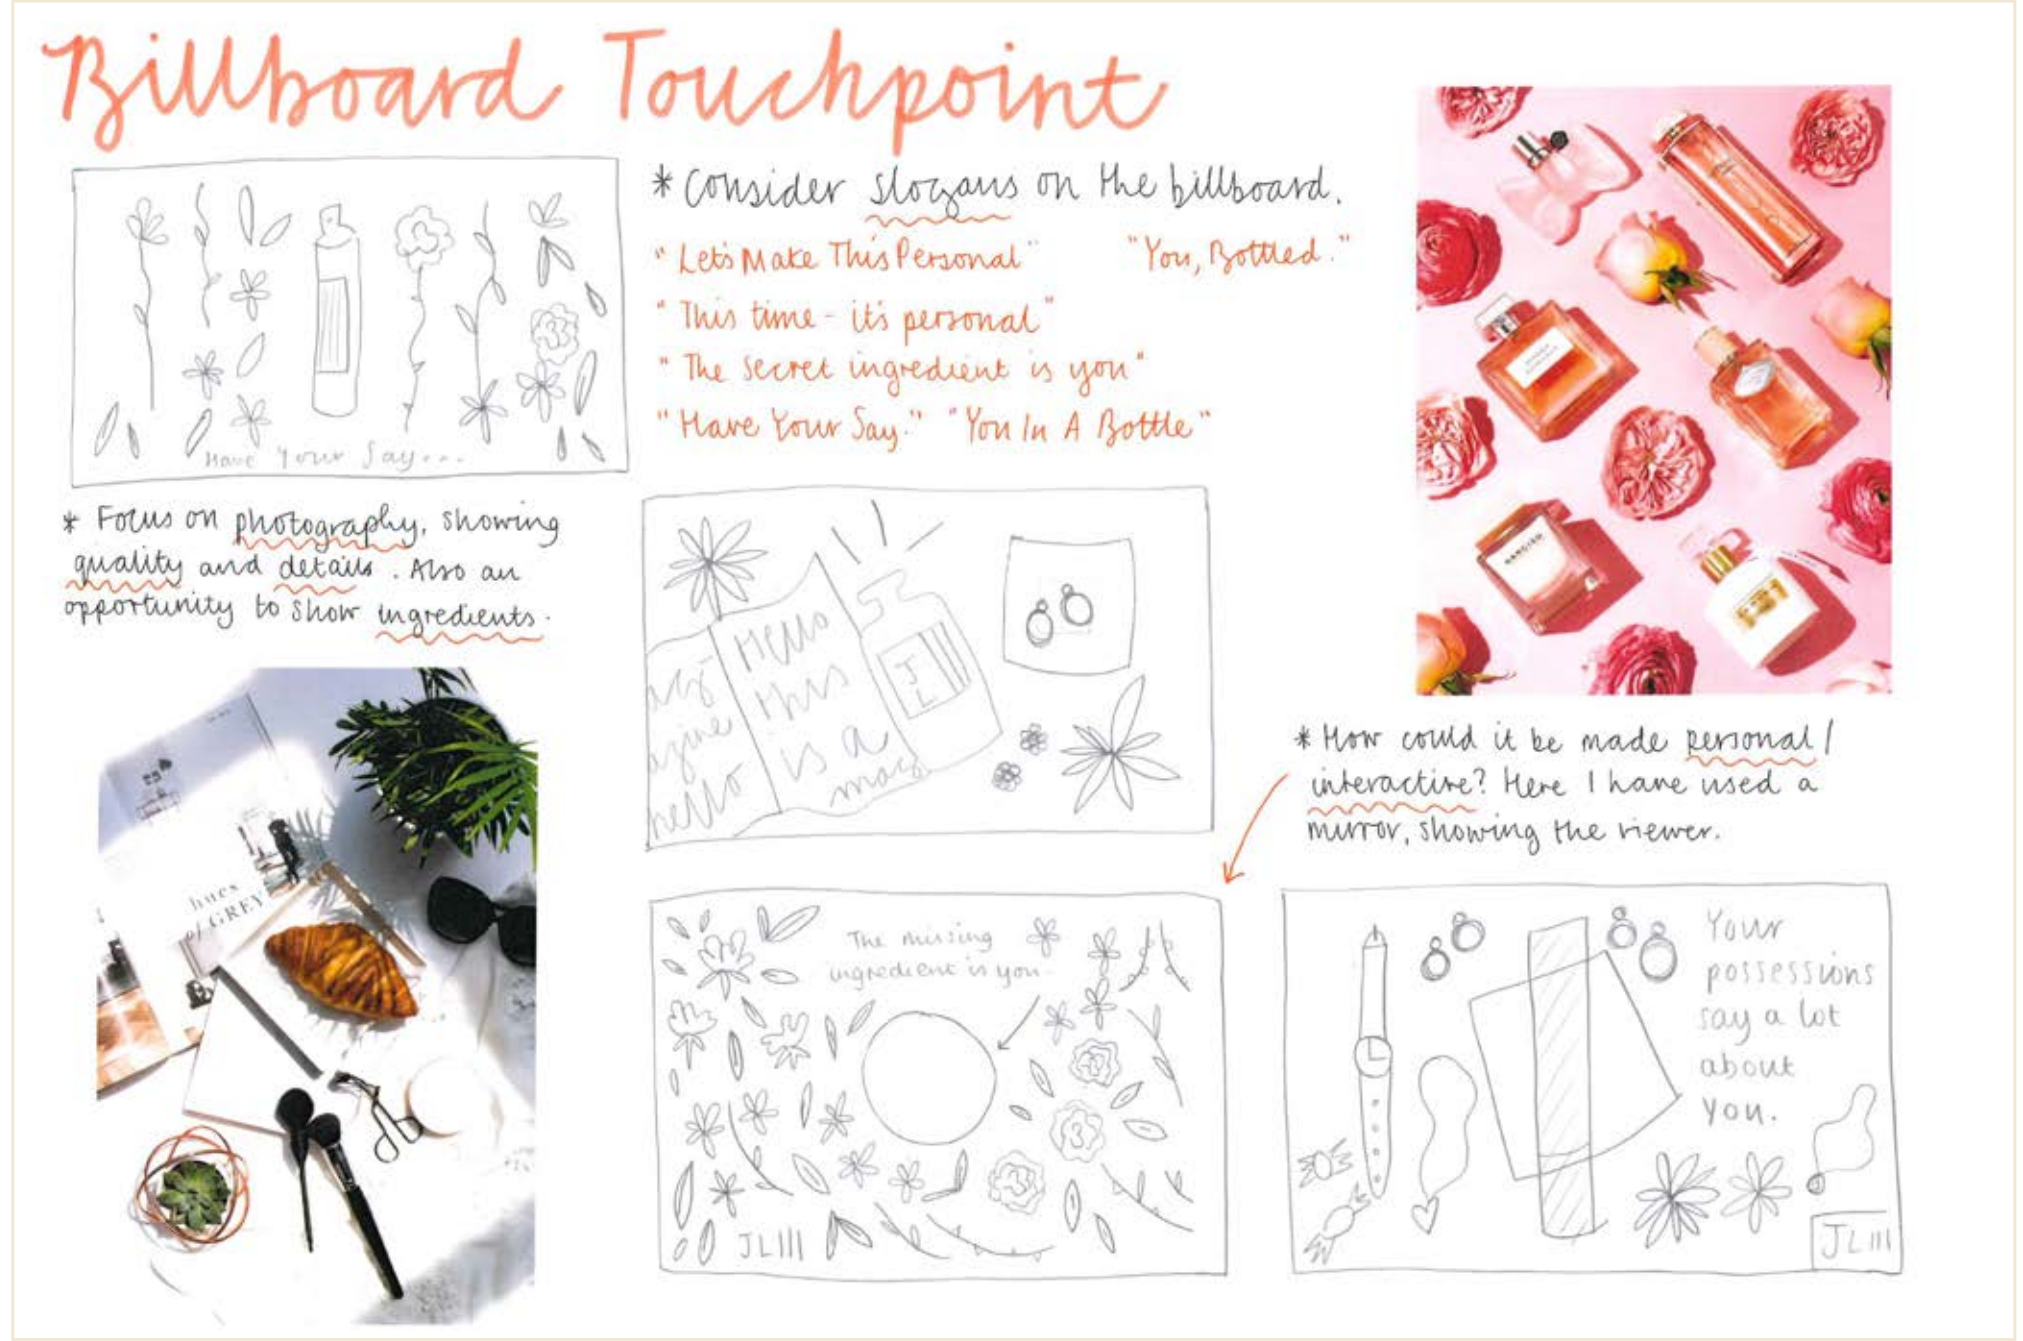 Billboard Touchpoint
Have Your Say...
* Consider slogans on the billboard.
"Let's Make This Personal" "You, Bottled."
"This time - it's personal"
"The secret ingredient is you"
"Have Your Say." "You In A Bottle"
* Focus on photography, showing
quality and details. Also an
opportunity to show ingredients.
Hello
this
is a
mag
azine
hello
JL
* How could it be made personal/
interactive? Here I have used a
mirror, showing the viewer.
hues
of GREY
NARCISO
The missing
ingredient is you-
JLIII
Your
possessions
say a lot
about
you.
JLIII